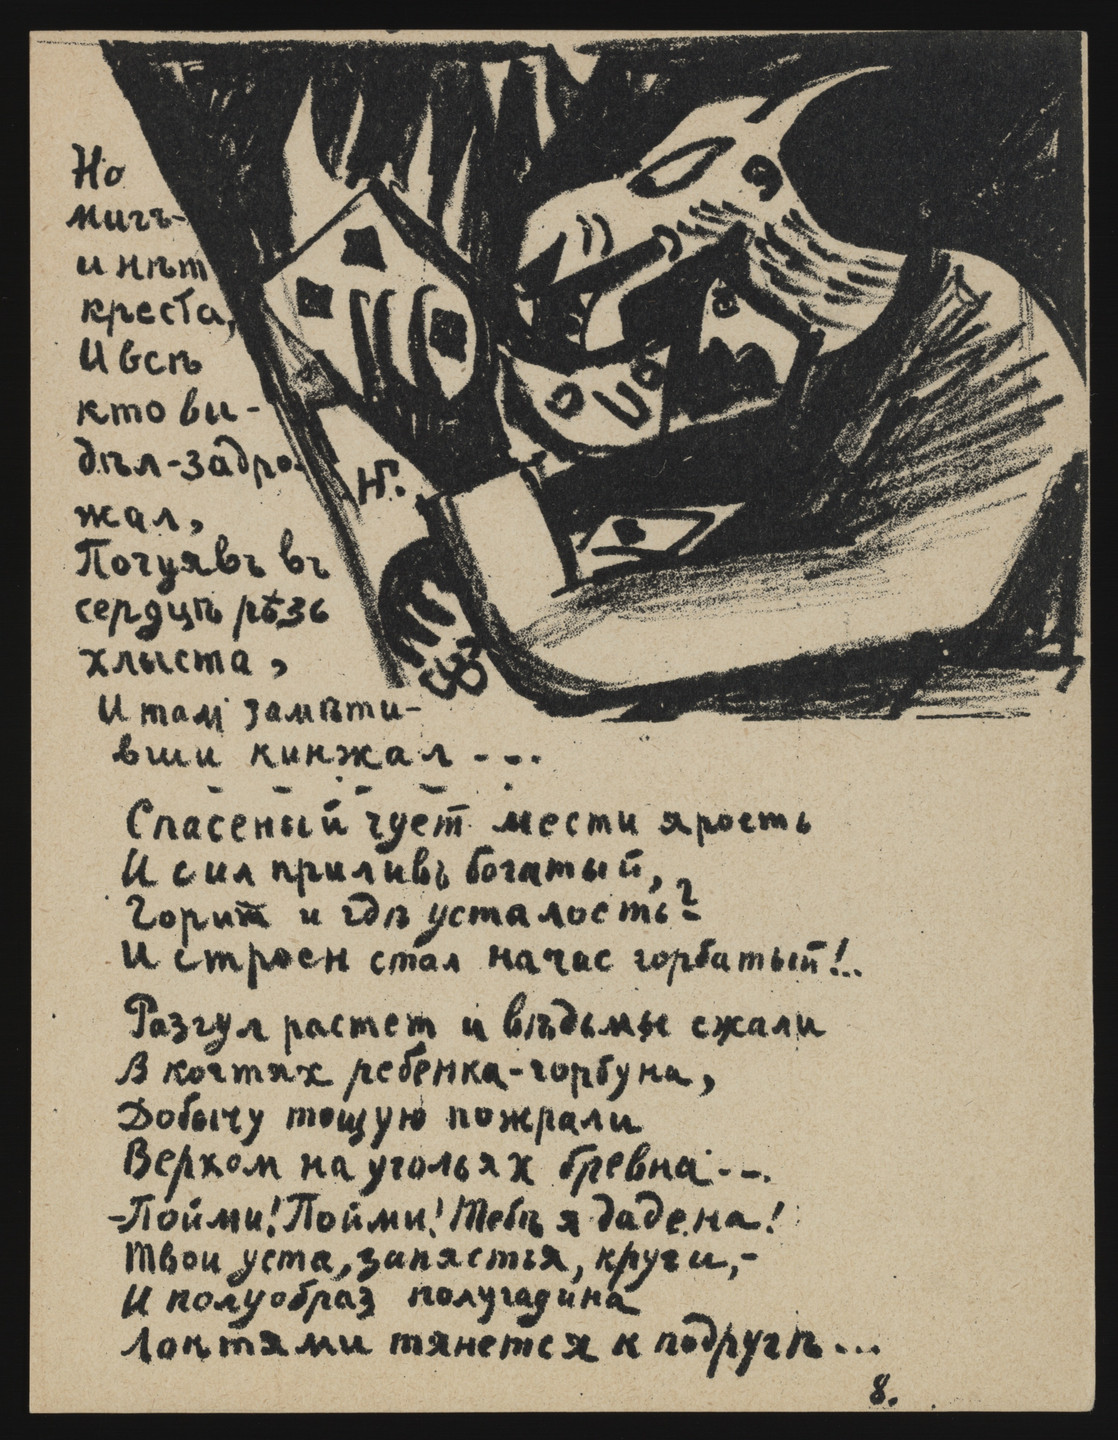 Но
мигъ-
и нѣт
креста,
И всѣ
кто ви-
дѣл-задро-
жал,
Почуявъ въ
сердцѣ рѣзь
хлыста,
И там замѣти-
вши кинжал - - .
НГ.
Спасеный чует мести ярость
И сил приливъ богатый,
Горит и гдѣ усталость?
И строен стал на час горбатый!..
Разгул растет и вѣдьмы сжали
В когтях ребенка-горбуна,
Добычу тощую пожрали
Верхом на угольях бревна - -.
-Пойми! Пойми! Тебѣ я дадена!
Твои уста, запястья, круги,-
И полуобраз полугадина
Локтями тянется к подругѣ...
8.